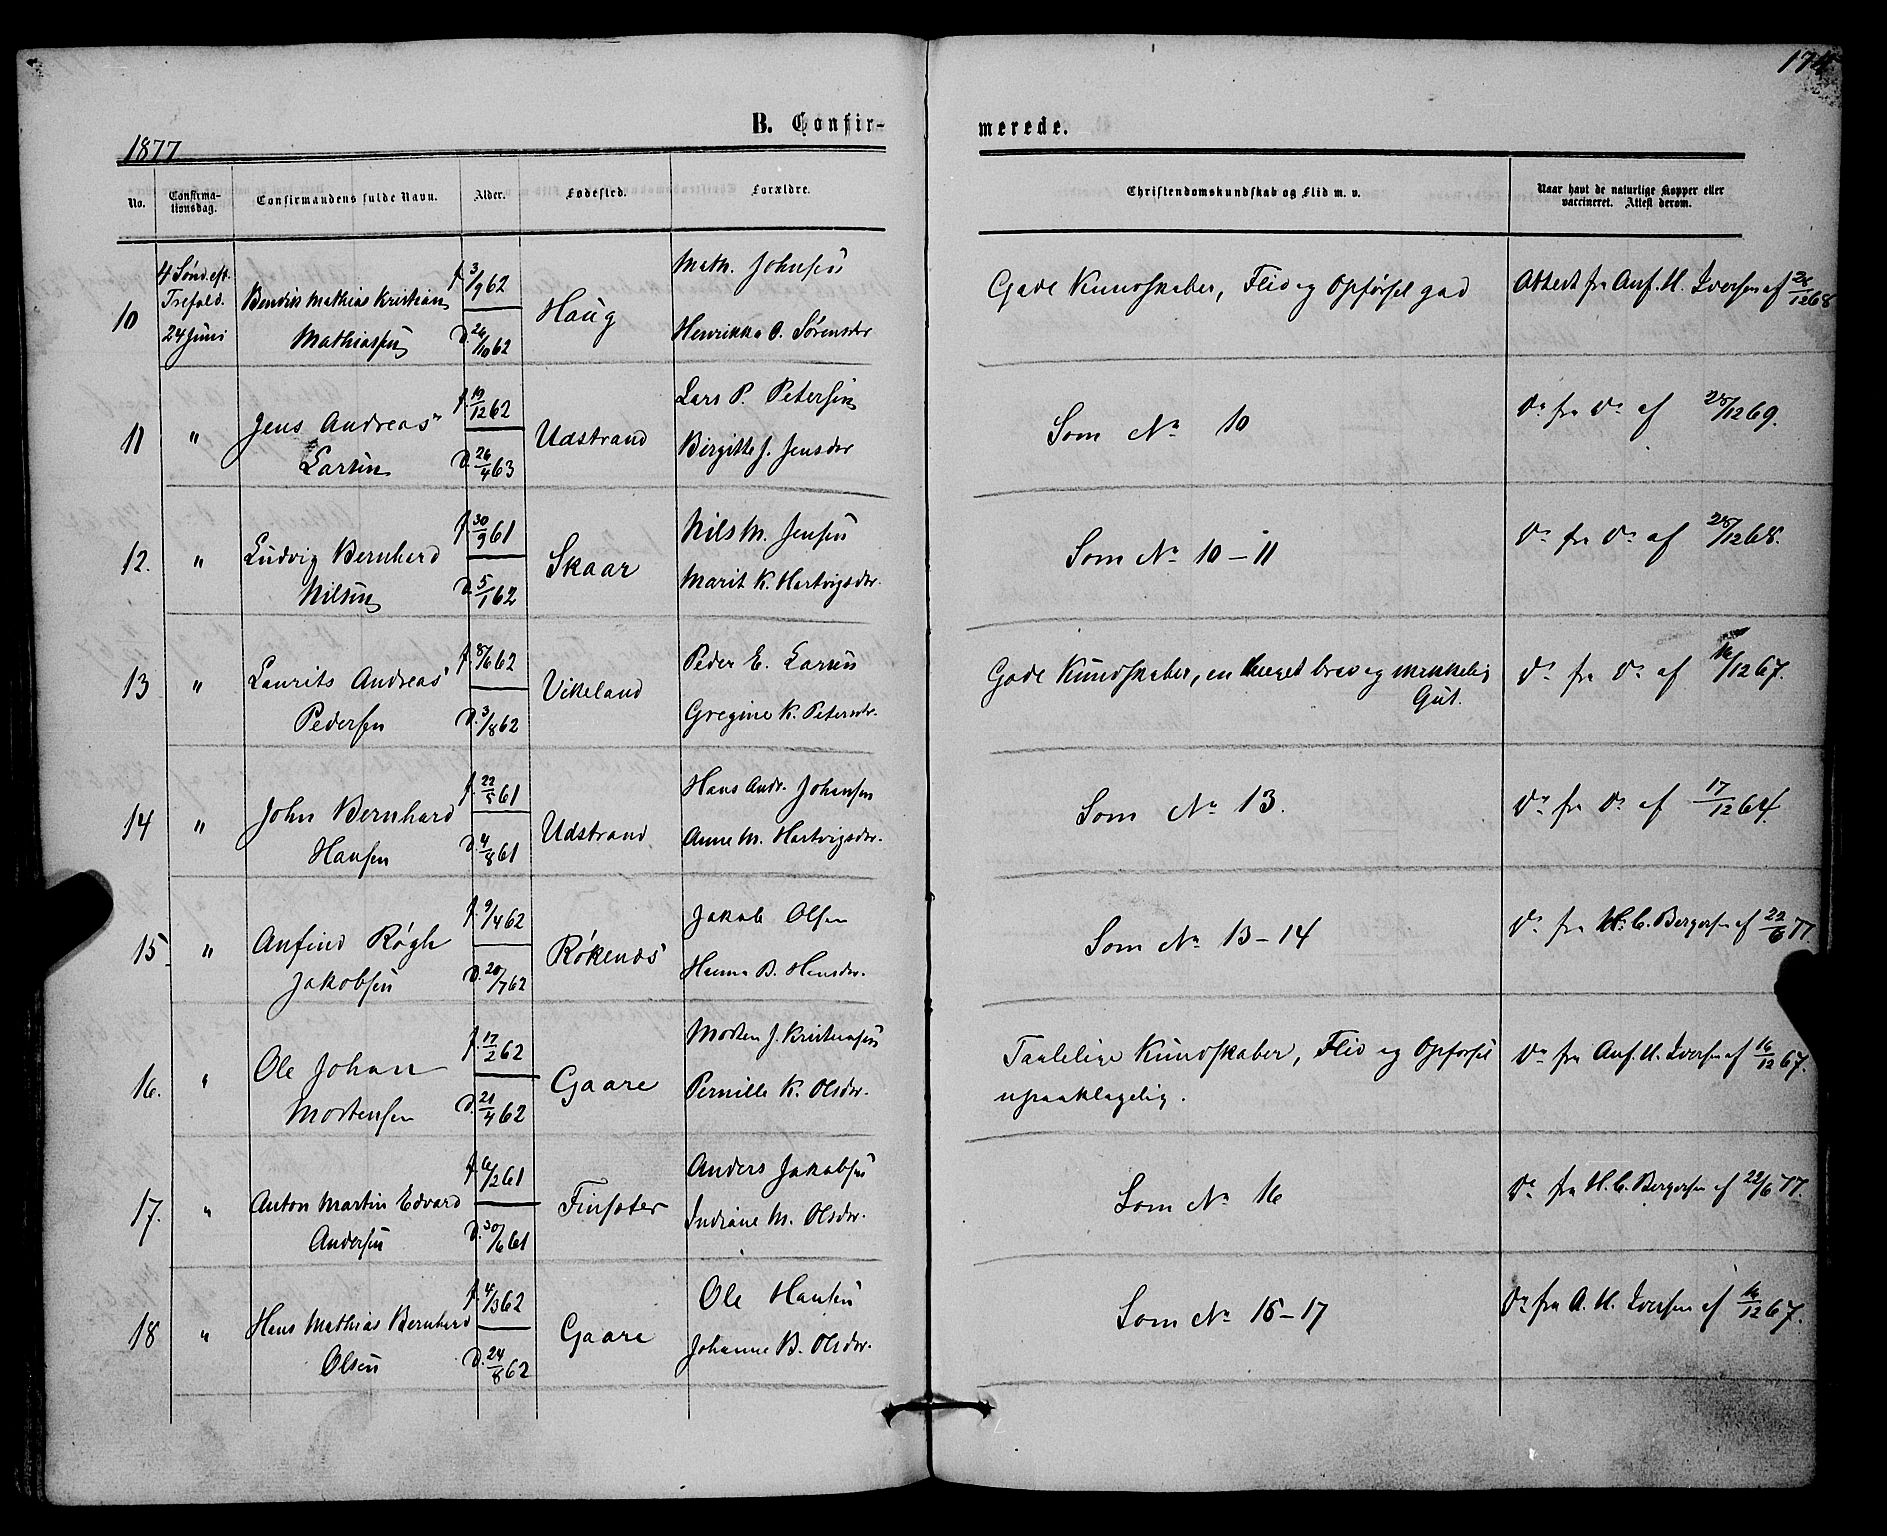 174
1877
B. Confir-
merede.
No.
Confirma-
tionsdag.
Confirmandens fulde Navn.
Alder.
Fødested.
Forældre.
Christendomskundskab og Flid m. v.
Naar havt de naturlige Kopper eller
vaccineret. Attest derom.
10
4 Sønd. eft.
Trefold.
24 Juni
Bendik Mathias Kristian
Mathiassen
f. 3/9 62
D. 26/10 62
Haug
Math. Johnsen
Henrikka O. Sørensdr
Gode Kundskaber, Flid og Opførsel god
Attest fra Anf. U. Iversen af 28/12 68
11
"
Jens Andreas
Larsen
f. 19/12 62
D. 26/4 63
Udstrand
Lars P. Petersen
Birgitte J. Jensdr
Som No 10
Do fra Do af 28/12 69.
12.
"
Ludvig Bernhard
Nilsen
f. 30/9 61
D. 5/1 62
Skaar
Nils M. Jensen
Marit K. Hartvigsdr.
Som No 10-11
Do fra Do af 28/12 68.
13
"
Laurits Andreas
Pedersen
f. 8/6 62
D. 3/8 62
Vikeland
Peder E. Larsen
Gregine K. Petersdr.
Gode Kundskaber, en meget brav og mærkelig
Gut.
Do fra Do af 16/12 67.
14
"
John Bernhard
Hansen
f. 22/5 61
D. 4/8 61
Udstrand
Hans Andr. Johansen
Anne M. Hartvigsdr.
Som No 13.
Do fra Do af 17/12 64.
15
"
Anfind Røgh
Jakobsen
f. 9/4 62
D. 20/7 62
Røkenæs
Jakob Olsen
Hanna B. Hansdr.
Som No 13-14
Do fra H. C. Bergersen af 22/6 77.
16.
"
Ole Johan
Mortensen
f. 17/2 62
D. 21/4 62
Gaare
Morten J. Kristensen
Pernille K. Olsdr.
Taalelige Kundskaber, Flid og Opførsel
upaaklagelig.
Do fra Anf. U. Iversen af 16/12 67.
17.
"
Anton Martin Edvard
Andersen
f. 6/2 61
D. 30/6 61
Finsæter
Anders Jakobsen
Indiane M. Olsdr.
Som No 16
Do fra H. C. Bergersen af 22/6 77.
18
"
Hans Mathias Bernhard
Olsen
f. 4/3 62
D. 24/8 62
Gaare
Ole Hansen
Johanne B. Olsdr.
Som No 16-17
Do fra A. U. Iversen af 16/12 67.